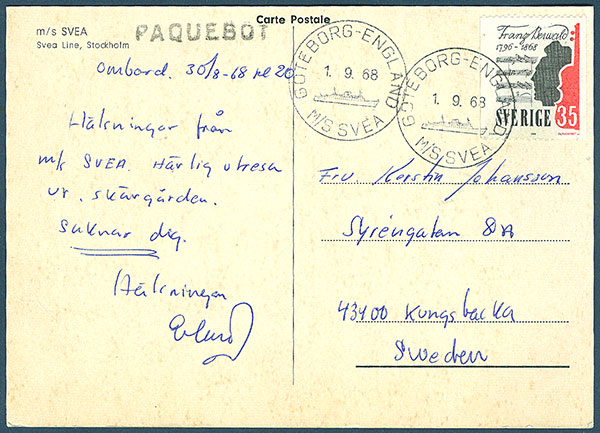 Carte Postale
m/s SVEA
Svea Line, Stockholm
PAQUEBOT
Ombord. 30/8-68 kl 20
Hälsningar från
m/s SVEA. Härlig utresa
ur skärgården.
Saknar dig.
Hälsningar
GÖTEBORG-ENGLAND
1. 9. 68
M/S SVEA
GÖTEBORG-ENGLAND
1. 9. 68
M/S SVEA
Franz Berwald
1796-1868
SVERIGE 35
Fru. Kerstin Johansson
Syréngatan 8A
43400 Kungsbacka
Sweden